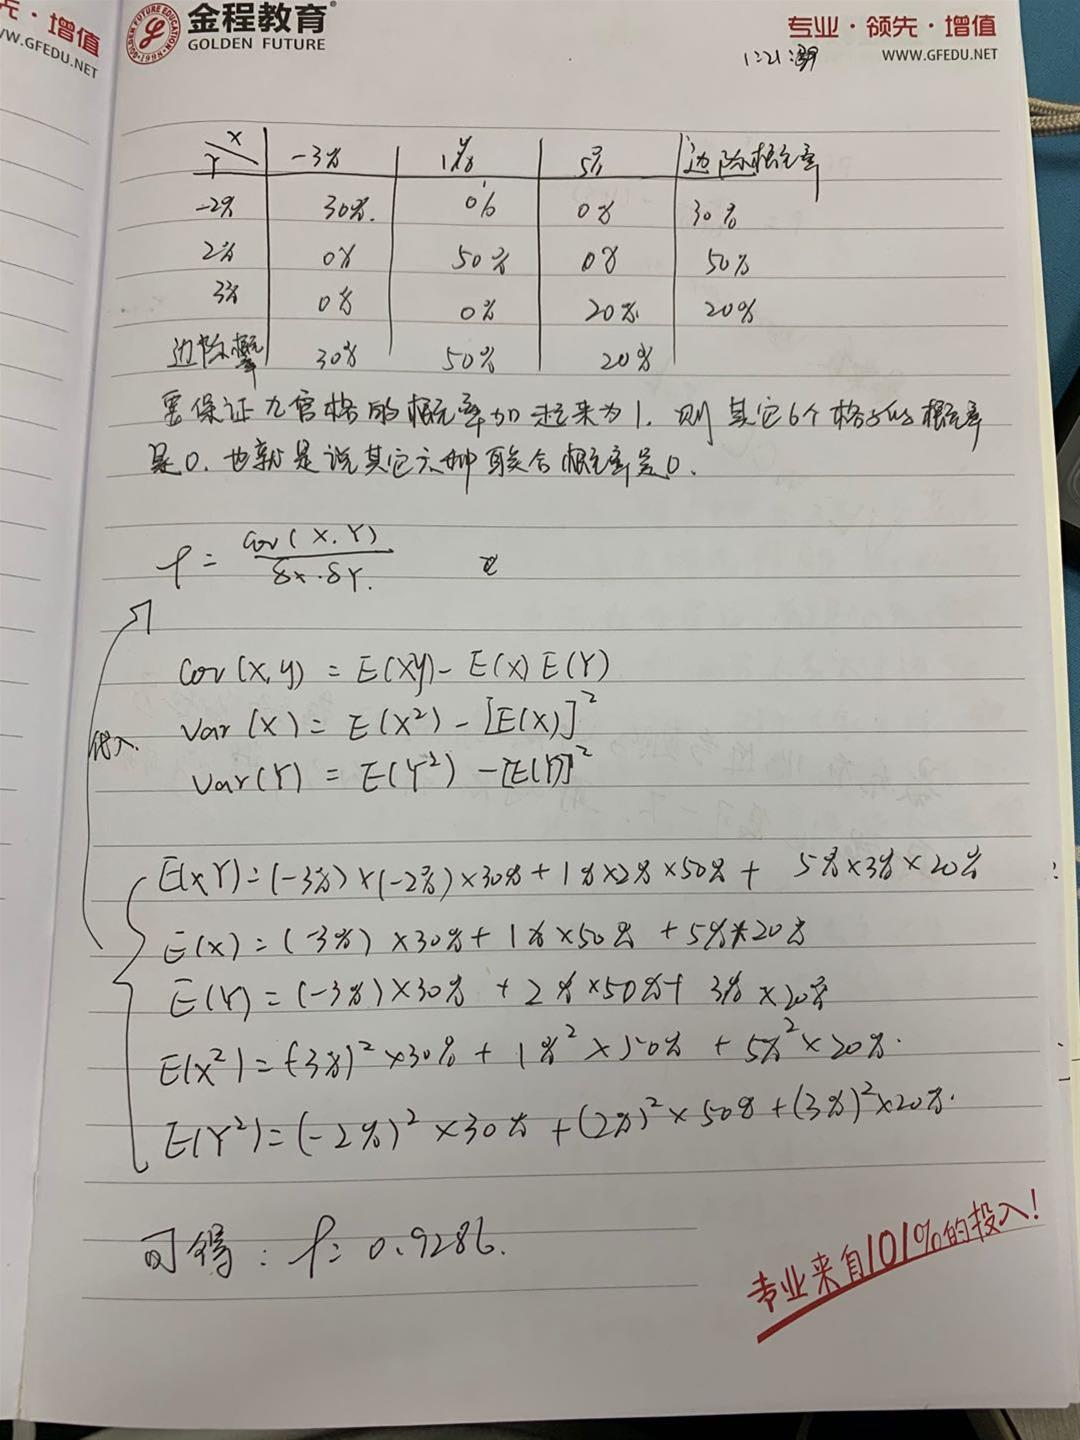 增值
WW.GFEDU.NET
金程教育
GOLDEN FUTURE
专业·领先·增值
WWW.GFEDU.NET
X
Y
-3% 1% 5% 边际概率
-2% 30%. 0% 0% 30%
2% 0% 50% 0% 50%
3% 0% 0% 20%. 20%
边际概率 30% 50% 20%
要保证九宫格的概率加起来为1. 则其它6个格子的概率
是0. 也就是说其它六种联合概率是0.
ρ = Cov(X.Y) / δx·δY.
Cov(X,y) = E(XY) - E(X) E(Y)
Var(X) = E(X²) - [E(X)]²
代入.
Var(Y) = E(Y²) - [E(Y)]²
E(XY) = (-3%)×(-2%)×30% + 1%×2%×50% + 5%×3%×20%
E(X) = (-3%)×30% + 1%×50% + 5%×20%
E(Y) = (-3%)×30% + 2%×50% + 3%×20%
E(X²) = (-3%)²×30% + 1%²×50% + 5%²×20%.
E(Y²) = (-2%)²×30% + (2%)²×50% + (3%)²×20%.
可得: ρ = 0.9286.
专业来自101%的投入!